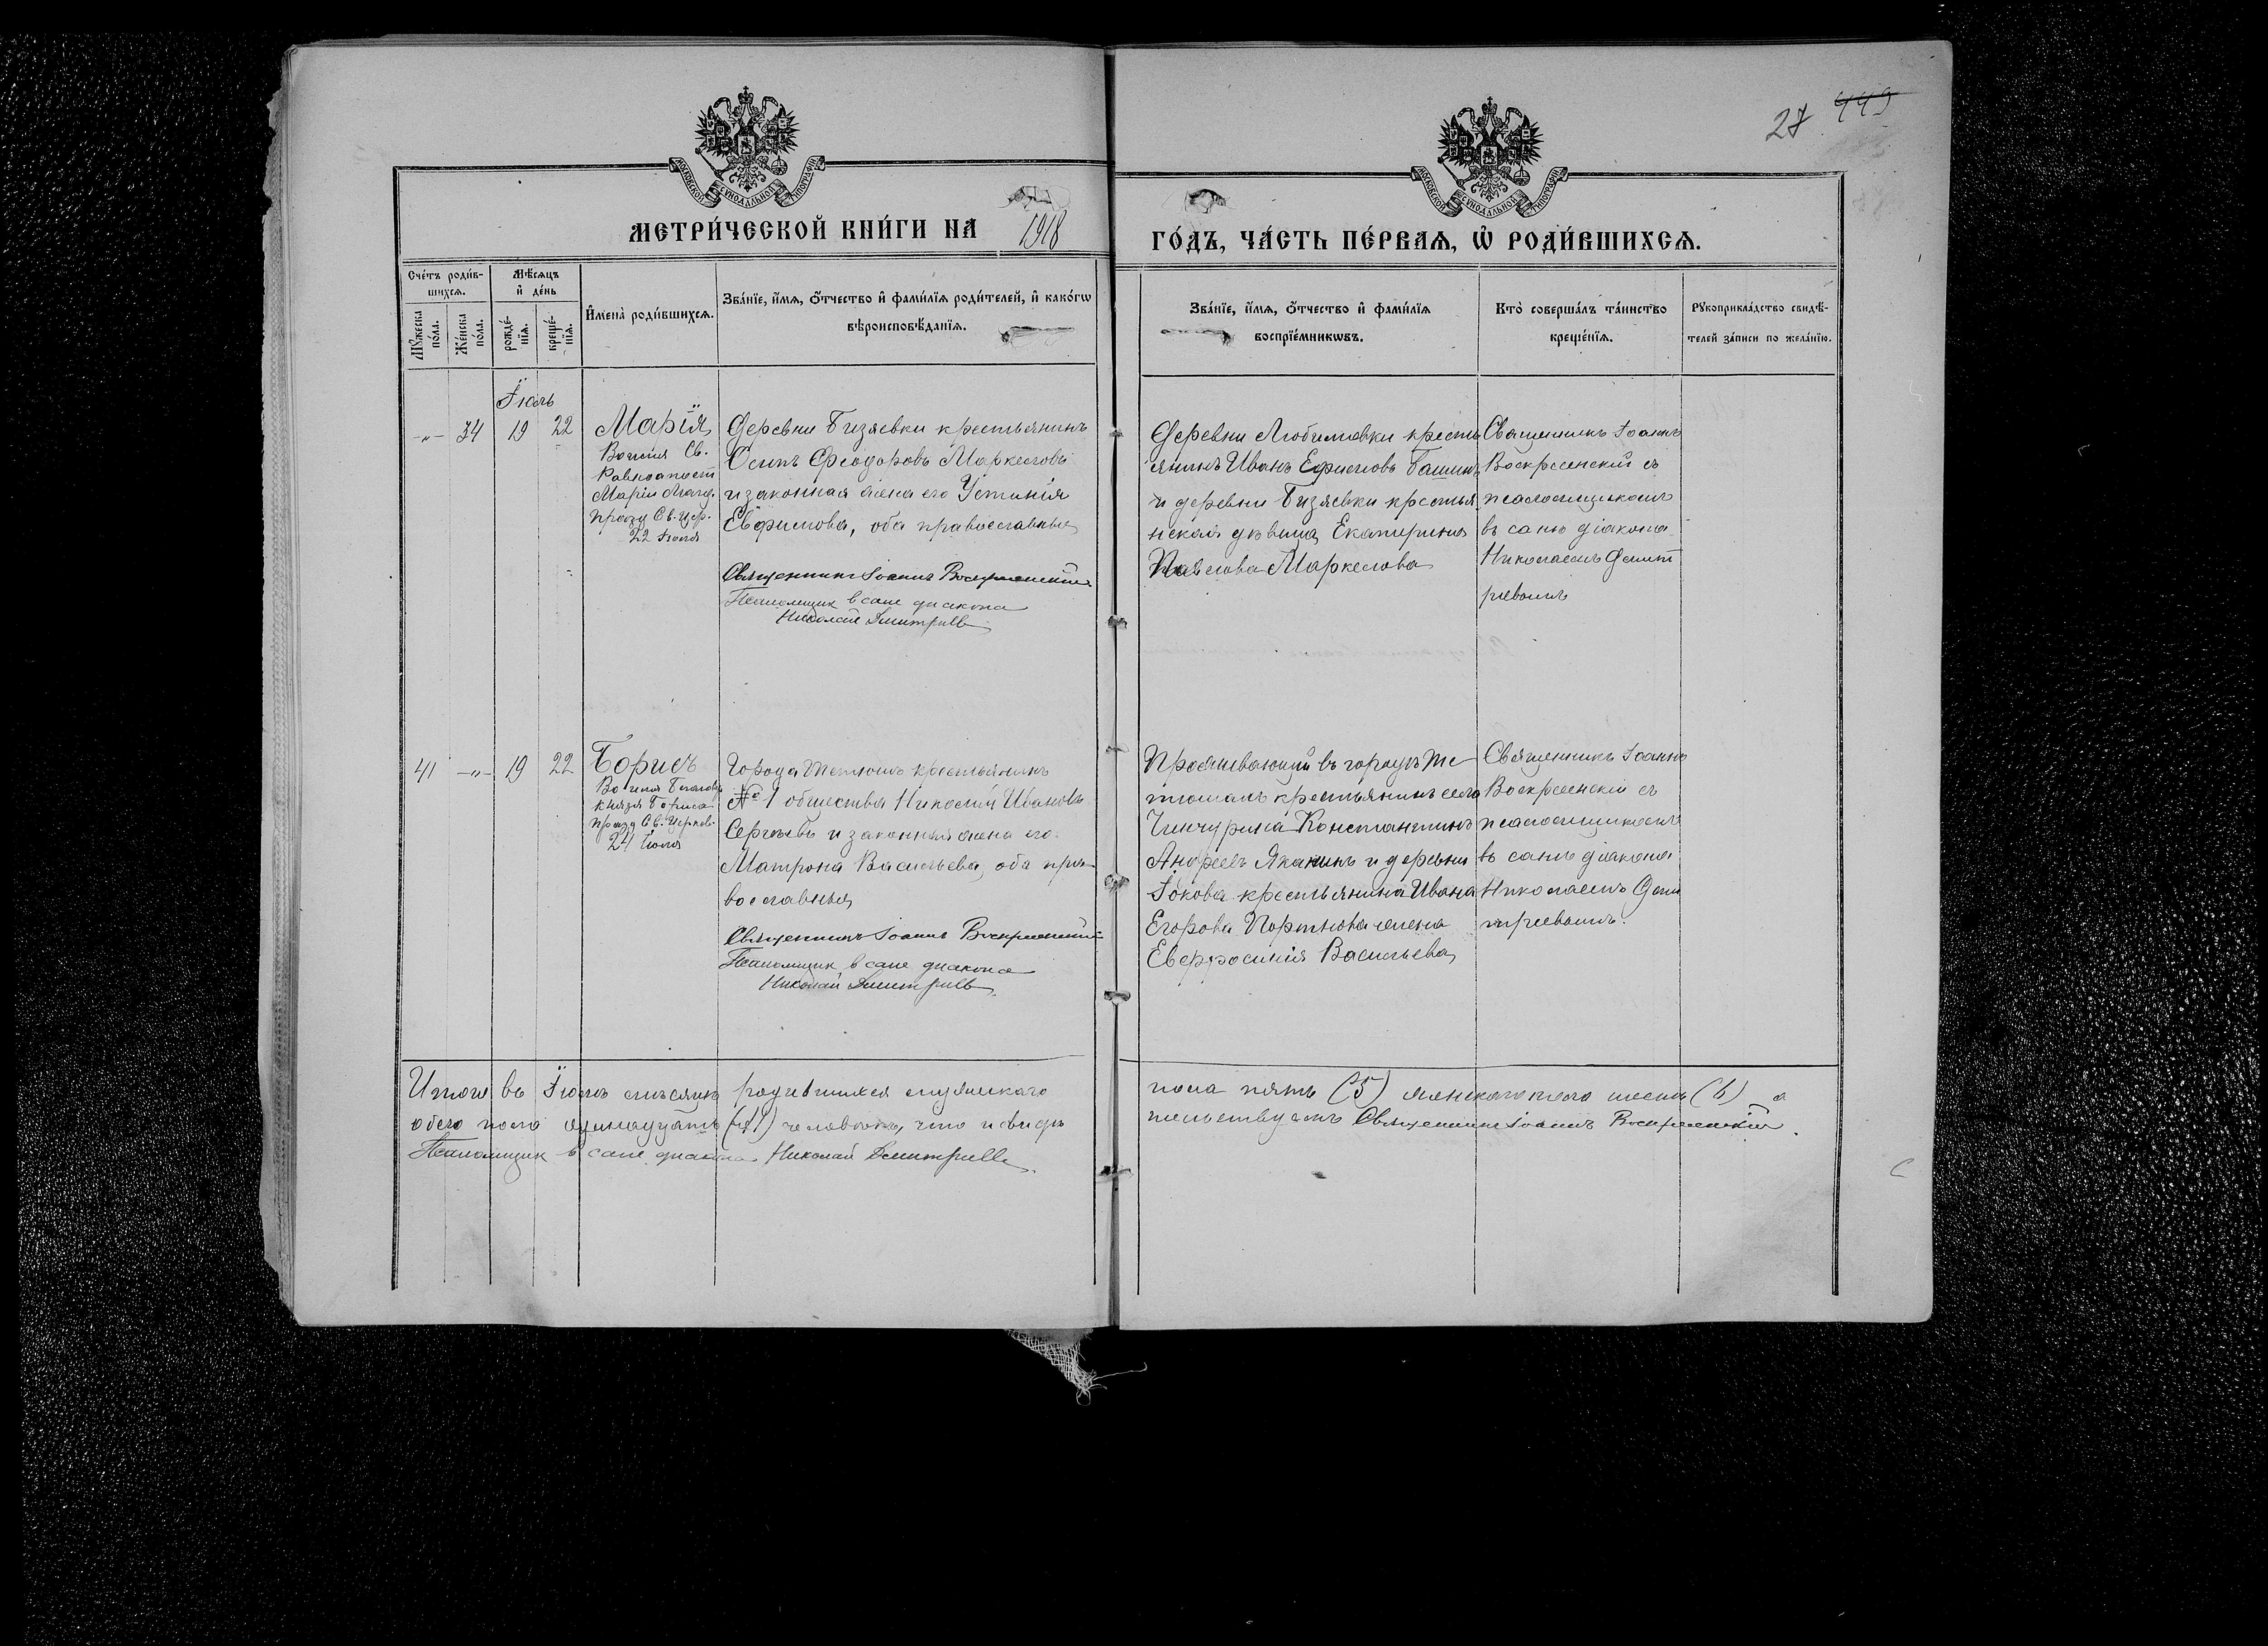 27 449
МОСКОВСКОЙ СѴНОДАЛЬНОЙ ТИПОГРАФІИ
МОСКОВСКОЙ СѴНОДАЛЬНОЙ ТИПОГРАФІИ
МЕТРИ́ЧЕСКОЙ КНИ́ГИ НА 1918
ГО́ДЪ, ЧА́СТЬ ПЕ́РВАѦ, Ѡ҆ РОДИ́ВШИХСѦ.
Сче́тъ роди́в-
шихсѧ.
Мѣ́сѧцъ
и҆ де́нь
Мꙋ́жеска
по́ла.
Же́нска
по́ла.
рожде́-
нїѧ.
креще́-
нїѧ.
И҆мена̀ роди́вшихсѧ.
Зва́нїе, и҆́мѧ, ѻ҆́тчество и҆ фами́лїѧ роди́телей, и҆ како́гѡ
вѣроисповѣ́данїѧ.
Зва́нїе, и҆́мѧ, ѻ҆́тчество и҆ фами́лїѧ
воспрїе́мникѡвъ.
Кто̀ соверша́лъ та́инство
креще́нїѧ.
Рꙋкоприкла́дство свидѣ́-
телей за́писи по жела́нїю.
Іюль
-"- 34 19 22
Марія
Во имя Св.
Равноапост
Маріи Магд.
празд Св. Цер.
22 Іюля
Деревни Бизяевки крестьянинъ
Осипъ Ѳеодоровъ Маркеловъ
и законная жена его Устинія
Евфимова, оба православные
Священникъ Іоаннъ Воскресенскій
Псаломщик в сане диакона
Николай Дмитриев
Деревни Любимовки кресть
янинъ Иванъ Ефимовъ Башинъ
и деревни Бизяевки крестья
нская дѣвица Екатерина
Павлова Маркелова
Священникъ Іоаннъ
Воскресенскій съ
псаломщикомъ
въ санѣ діакона
Николаемъ Дмит
ріевымъ
41 -"- 19 22
Борисъ
Во имя Благовѣ
князя Бориса
празд Св. Церков
24 Іюля
Города Тетюшъ крестьянинъ
№ 1 общества Николай Ивановъ
Сергѣевъ и законная жена его
Матрона Васильева, оба пра-
вославные
Священникъ Іоаннъ Воскресенскій
Псаломщик в сане диакона
Николай Дмитриев
Проживающій въ городѣ Те-
тюшахъ крестьянинъ села
Чинчурина Константинъ
Андреевъ и деревни
Іокова крестьянина Ивана
Егорова Портнова жена
Евфросинія Васильева
Священникъ Іоаннъ
Воскресенскій съ
псаломщикомъ
въ санѣ діакона
Николаемъ Дми
тріевымъ.
Итого въ Іюлѣ мѣсяцѣ родившихся мужескаго
пола пять (5) женскаго пола шесть (6) а
обего пола одинадцать (11) человѣкъ, что и свидѣ
тельствуемъ Священникъ Іоаннъ Воскресенскій.
Псаломщик в сане диакона Николай Дмитриев